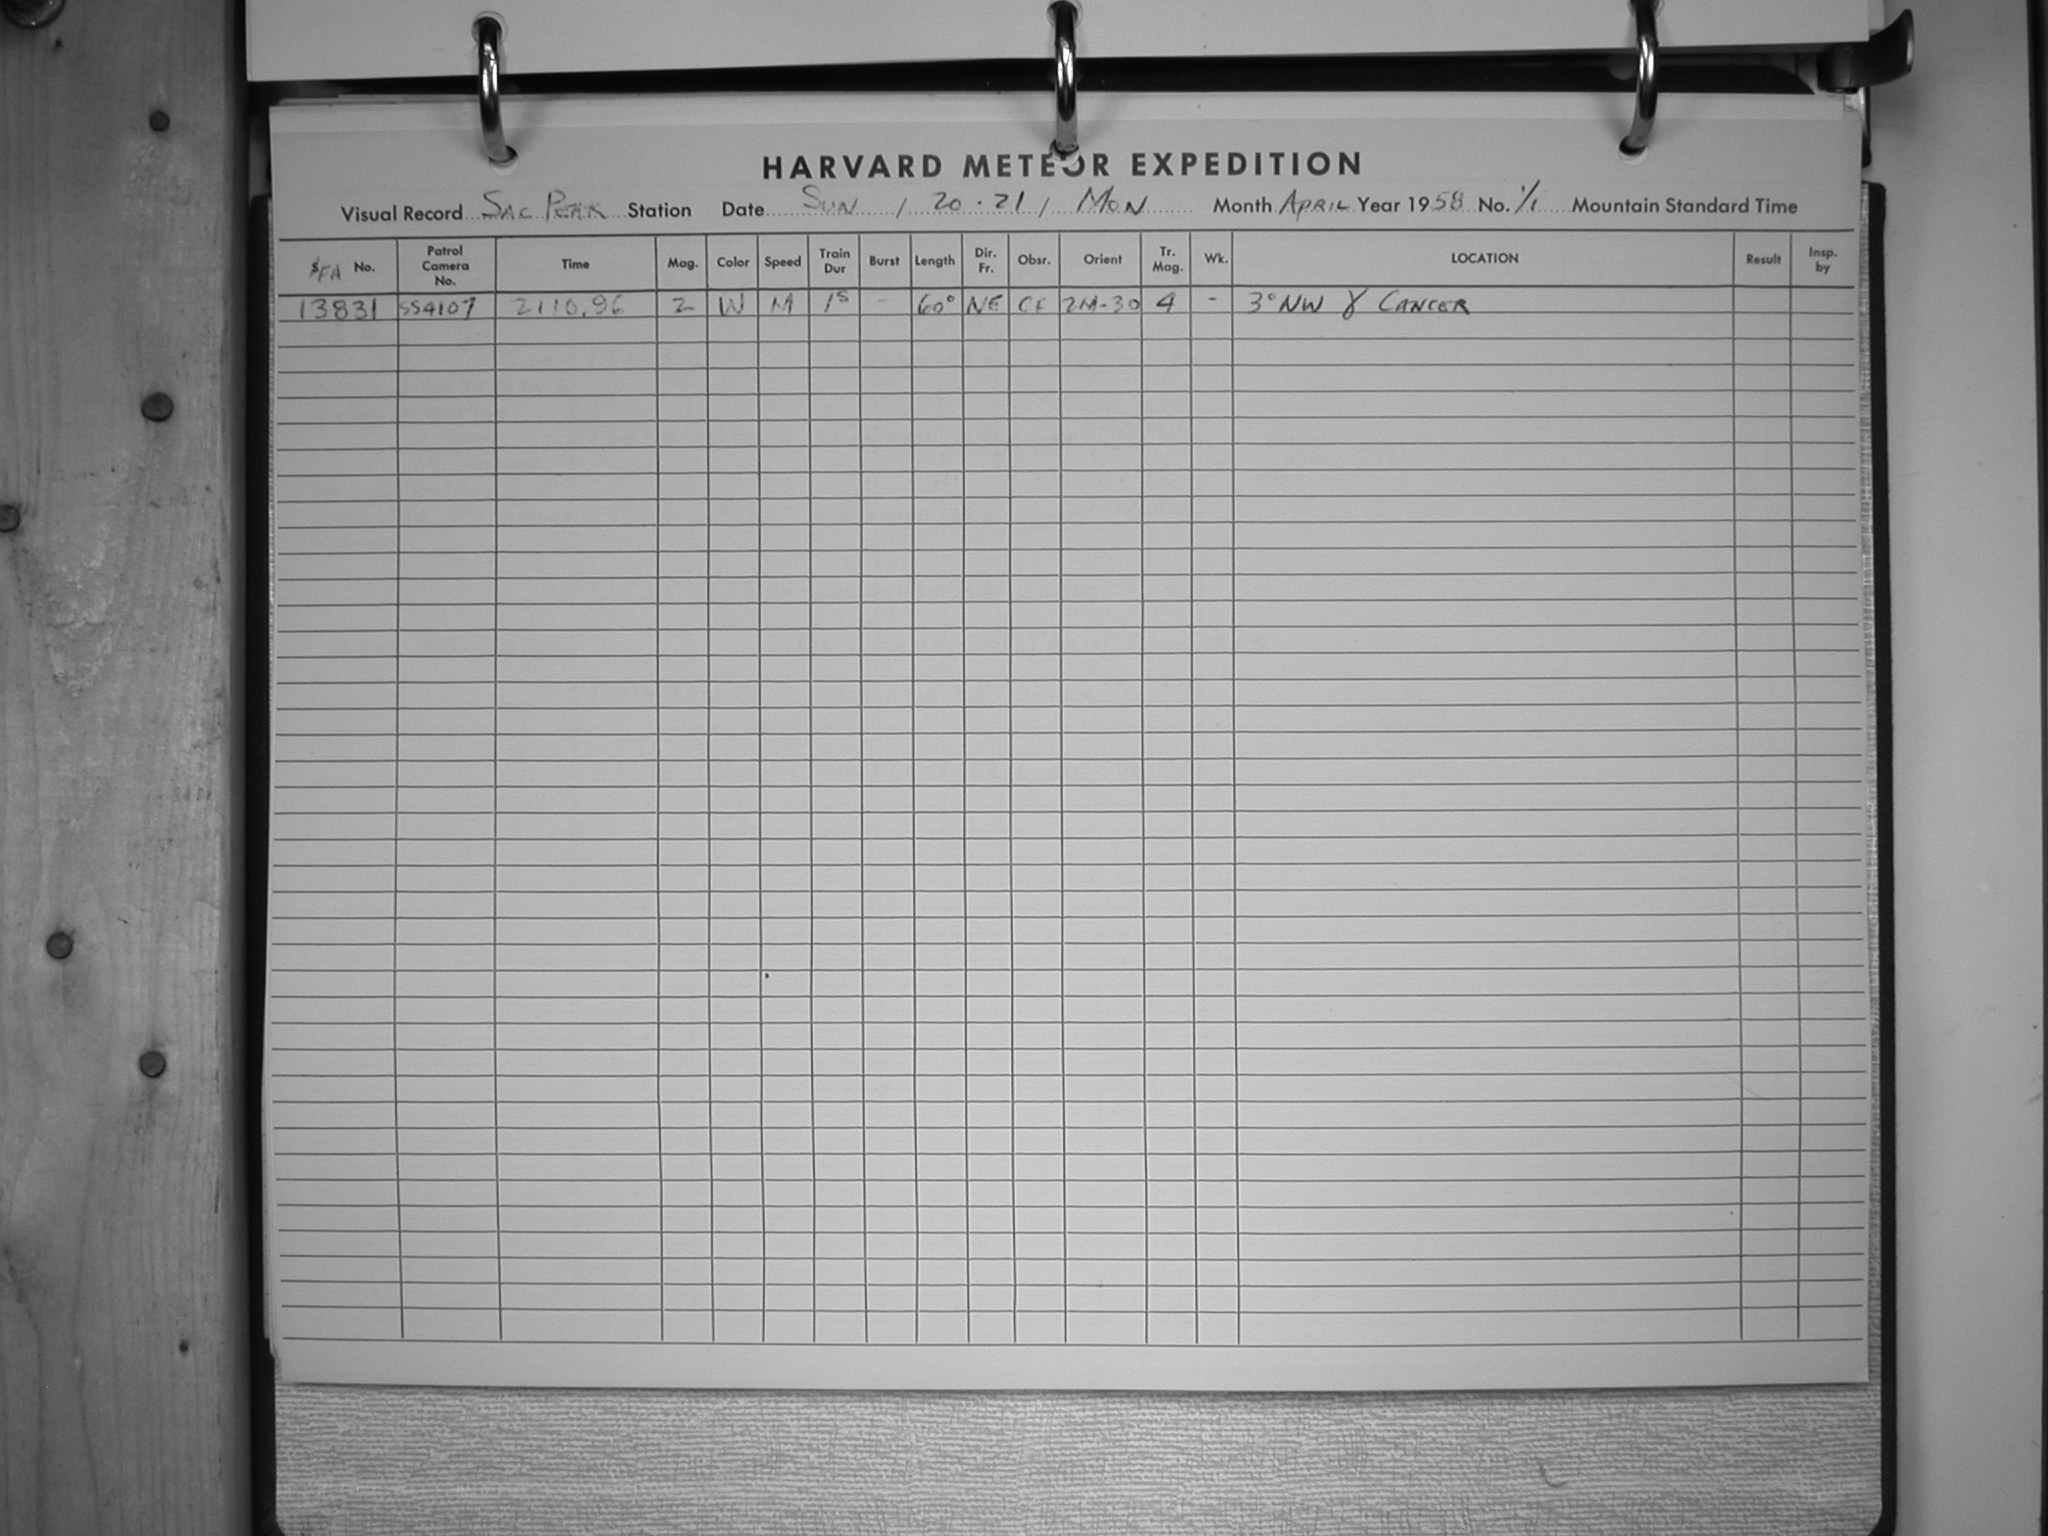 HARVARD METEOR EXPEDITION
Visual Record SAC PEAK Station Date SUN / 20 · 21 / MON Month APRIL Year 1958 No. 1/1 Mountain Standard Time
FA No. Patrol Camera No. Time Mag. Color Speed Train Dur Burst Length Dir. Fr. Obsr. Orient Tr. Mag. Wk. LOCATION Result Insp. by
13831 SS4107 2110.96 2 W M 1s - 60° NE CF 2M-30 4 - 3° NW γ CANCER